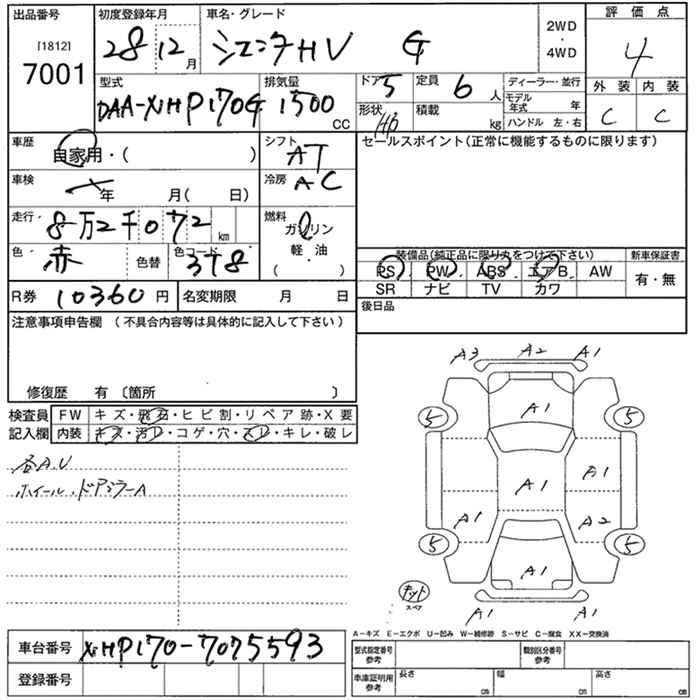 出品番号 初度登録年月 車名・グレード 評価点
[1812] 7001 28 12月 シエンタHV G 2WD・4WD 4
型式 排気量 ドア 5 定員 6人 ディーラー・並行 外装 内装
DAA-NHP170G 1500CC 形状 HB 積載 kg モデル年式 年 C C
ハンドル 左・右
車歴 自家用・( ) シフト AT セールスポイント(正常に機能するものに限ります)
車検 年 月( 日) 冷房 AC
走行 8万2千072km 燃料 ガソリン・軽油 ( )
色 赤 色替 色コード 3T8 装備品(純正品に限り丸をつけて下さい) 新車保証書
PS PW ABS エアB AW 有・無
R券 10360円 名変期限 月 日 SR ナビ TV カワ
後日品
注意事項申告欄 (不具合内容等は具体的に記入して下さい)
修復歴 有 〔箇所 〕
検査員 FW キズ・飛石・ヒビ割・リペア跡・X要
記入欄 内装 キズ・汚レ・コゲ・穴・スレ・キレ・破レ
各A.U
ホイール.ドアミラーA
A3 A2 A1
A1
5 5
A1 B1
A1 A2
5 5
A1
キット
スペア
A1 A1
A-キズ E-エクボ U-凹み W-補修跡 S-サビ C-腐食 XX-交換済
車台番号 NHP170-7075593 型式指定番号 参考 類別区分番号 参考
登録番号 車庫証明用 参考 長さ cm 幅 cm 高さ cm